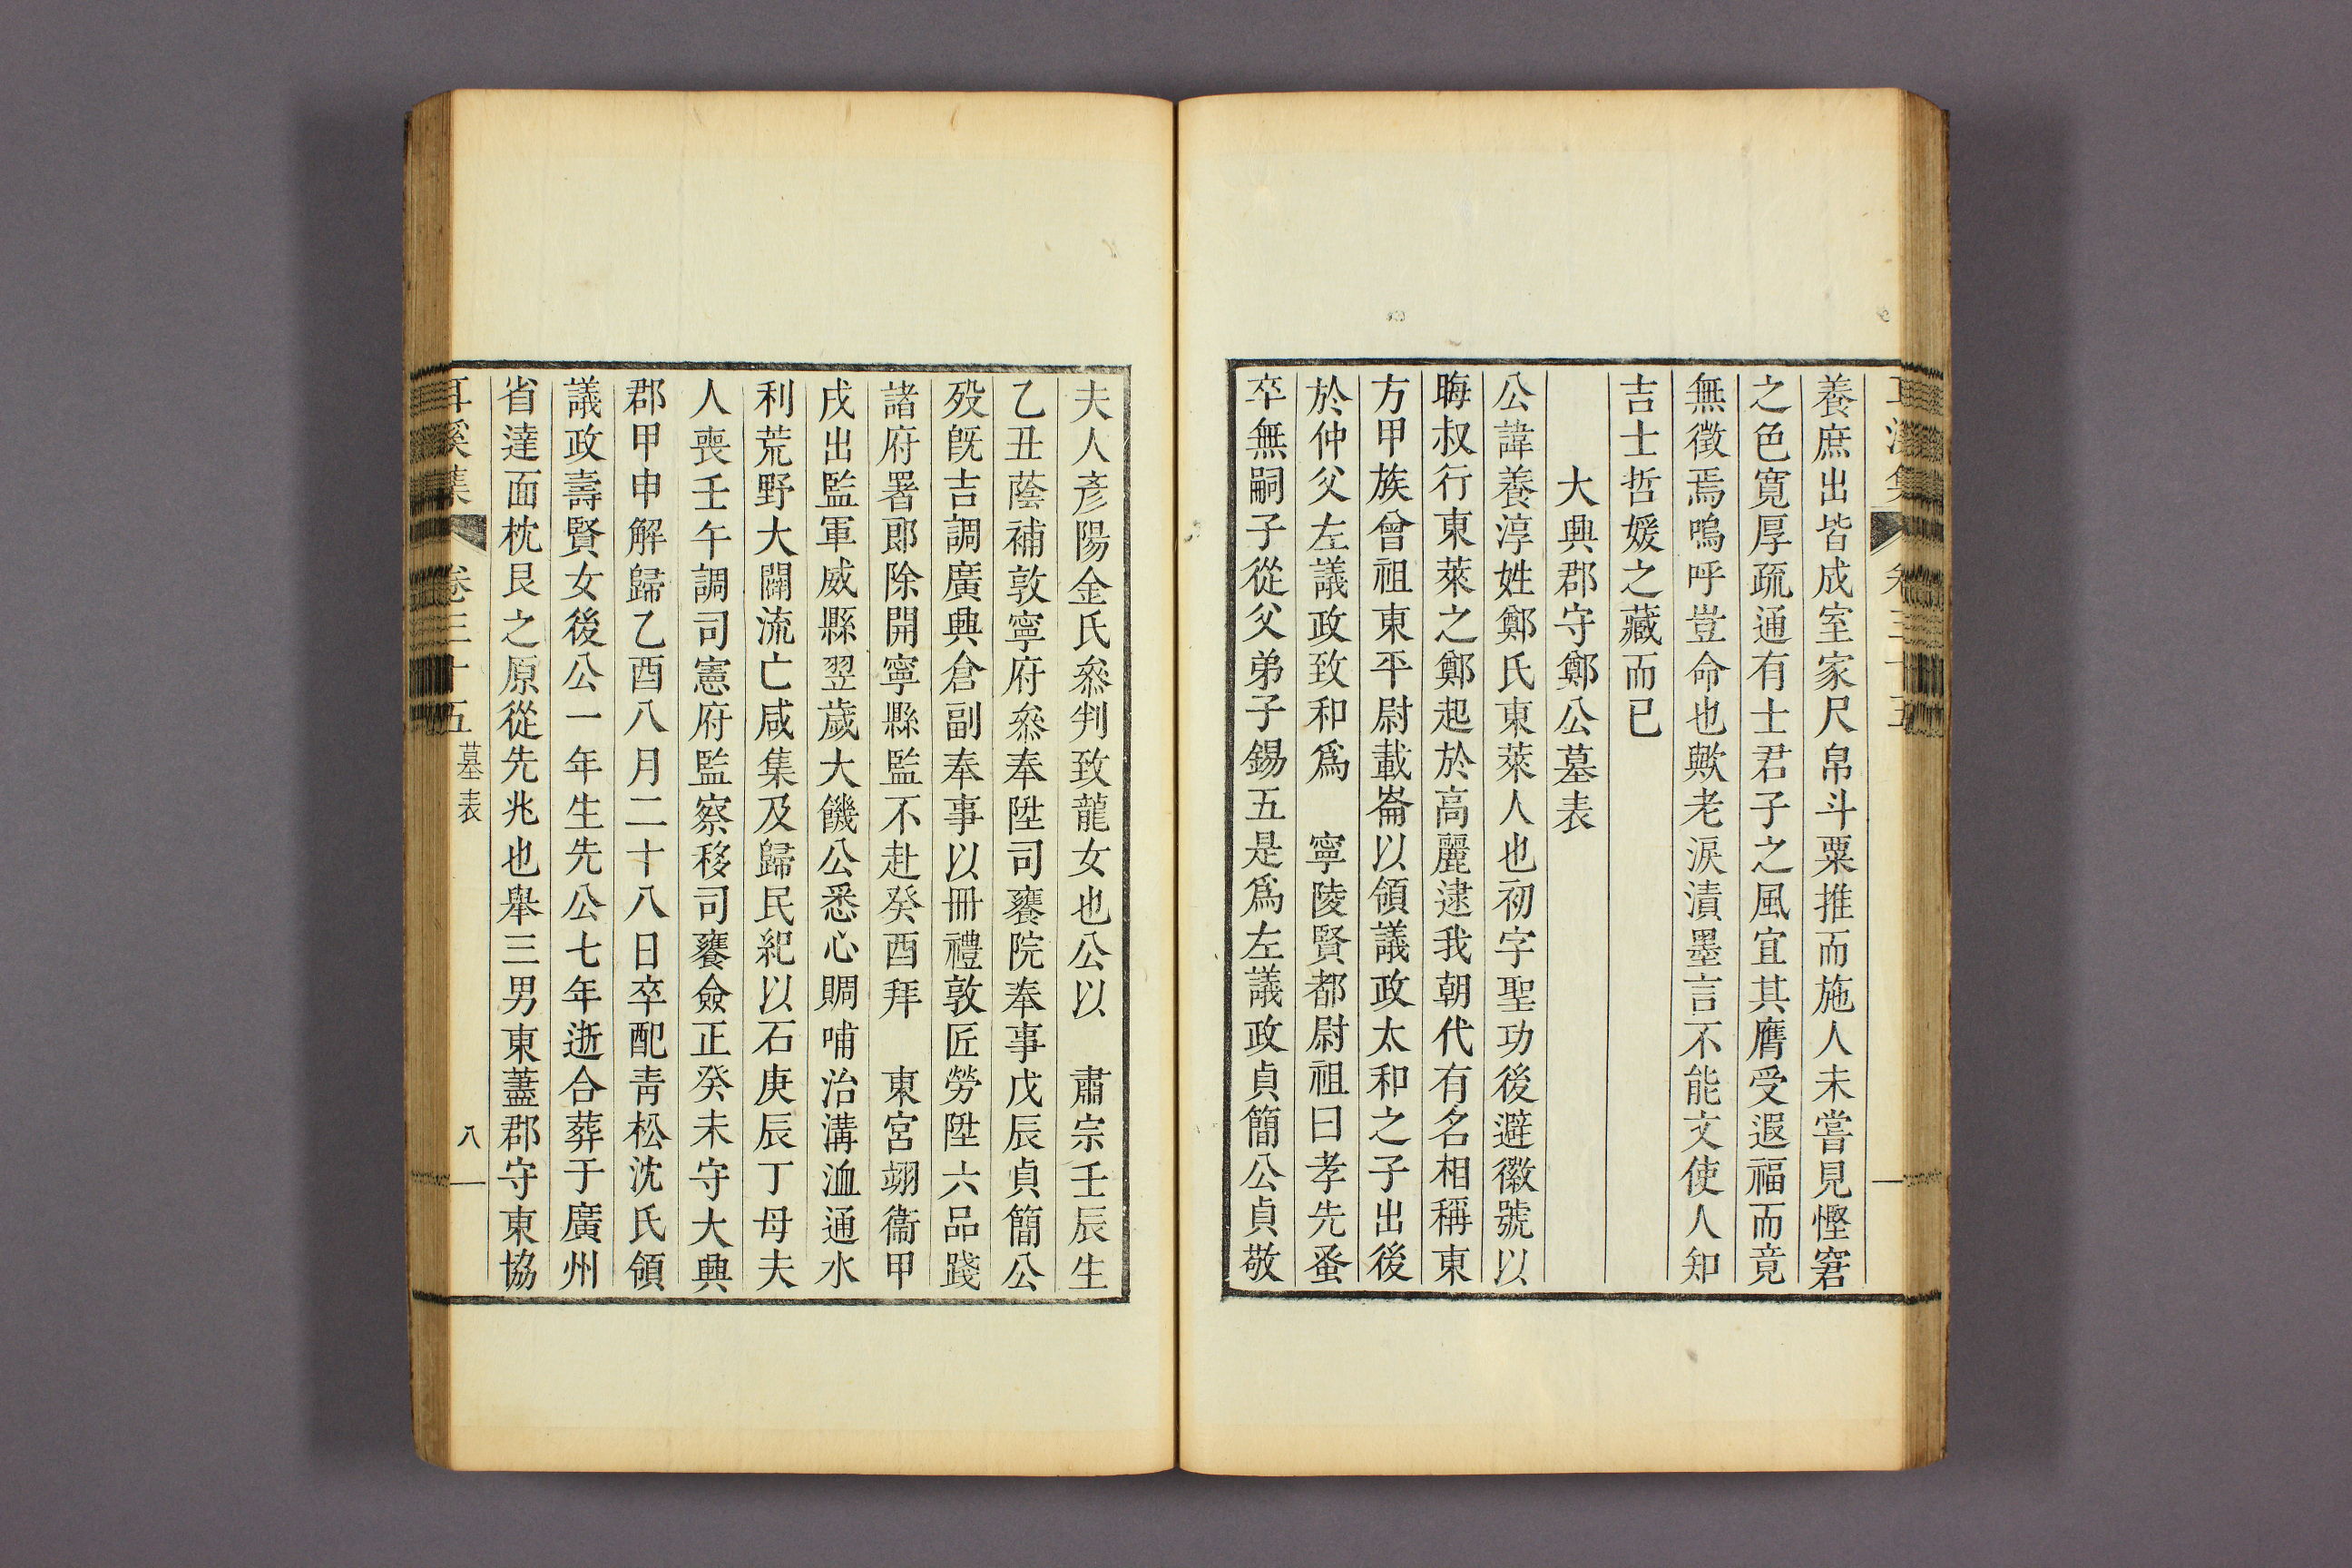 養庶出皆成室家尺帛斗粟推而施人未嘗見慳窘
之色寬厚疏通有士君子之風宜其膺受遐福而竟
無徵焉嗚呼豈命也歟老淚漬墨言不能文使人知
吉士哲媛之藏而已
大興郡守鄭公墓表
公諱養淳姓鄭氏東萊人也初字聖功後避徽號以
晦叔行東萊之鄭起於高麗逮我朝代有名相稱東
方甲族曾祖東平尉載崙以領議政太和之子出後
於仲父左議政致和爲 寧陵賢都尉祖曰孝先蚤
卒無嗣子從父弟子錫五是爲左議政貞簡公貞敬
夫人彥陽金氏叅判致龍女也公以 肅宗壬辰生
乙丑蔭補敦寧府叅奉陞司饔院奉事戊辰貞簡公
歿旣吉調廣興倉副奉事以冊禮敦匠勞陞六品踐
諸府署郞除開寧縣監不赴癸酉拜 東宮翊衞甲
戌出監軍威縣翌歲大饑公悉心賙哺治溝洫通水
利荒野大闢流亡咸集及歸民紀以石庚辰丁母夫
人喪壬午調司憲府監察移司饔僉正癸未守大興
郡甲申解歸乙酉八月二十八日卒配靑松沈氏領
議政壽賢女後公一年生先公七年逝合葬于廣州
省達面枕艮之原從先兆也舉三男東藎郡守東協
耳溪集 卷三十五 墓表 八